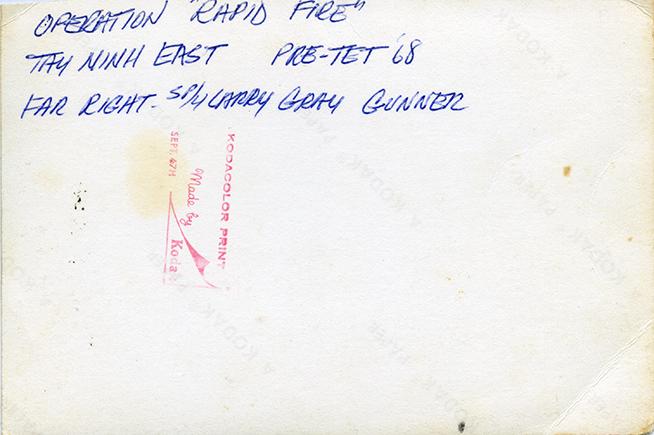 OPERATION "RAPID FIRE"
TAY NINH EAST PRE-TET '68
FAR RIGHT - SP/4 LARRY GRAY GUNNER
KODACOLOR PRINT
Made by
Koda
SEPT. 67H
A KODAK PAPER
A KODAK PAPER